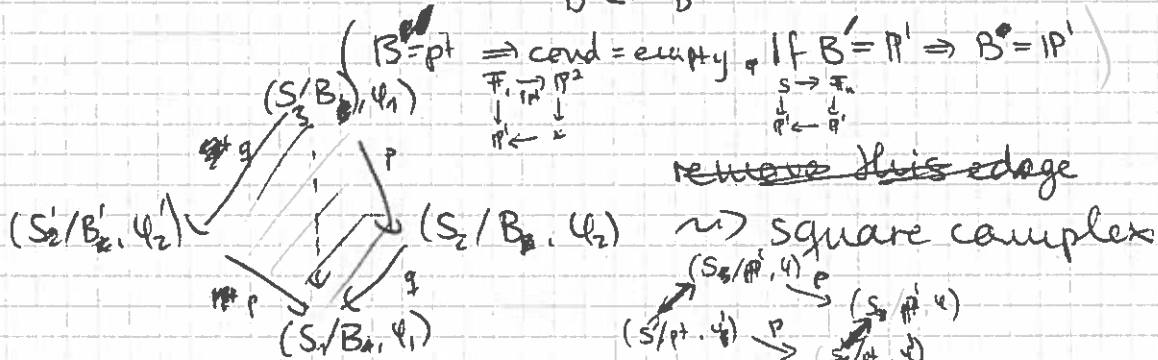 (B=pt ⇒ cond = empty. If B' = P¹ ⇒ B = P¹)
F₁ → P² S → Fₙ
pt
↓ ↓ ↓ ↓
P¹ ← * P¹ ← P¹
(S₃/B, φ₁)
q p
remove this edge
(S₂'/B₂', φ₂') (S₂/B, φ₂) ~> square complex
p q
(S₁/B₁, φ₁)
(S/P¹, φ) p (S/P¹, φ)
(S'/pt, φ') p